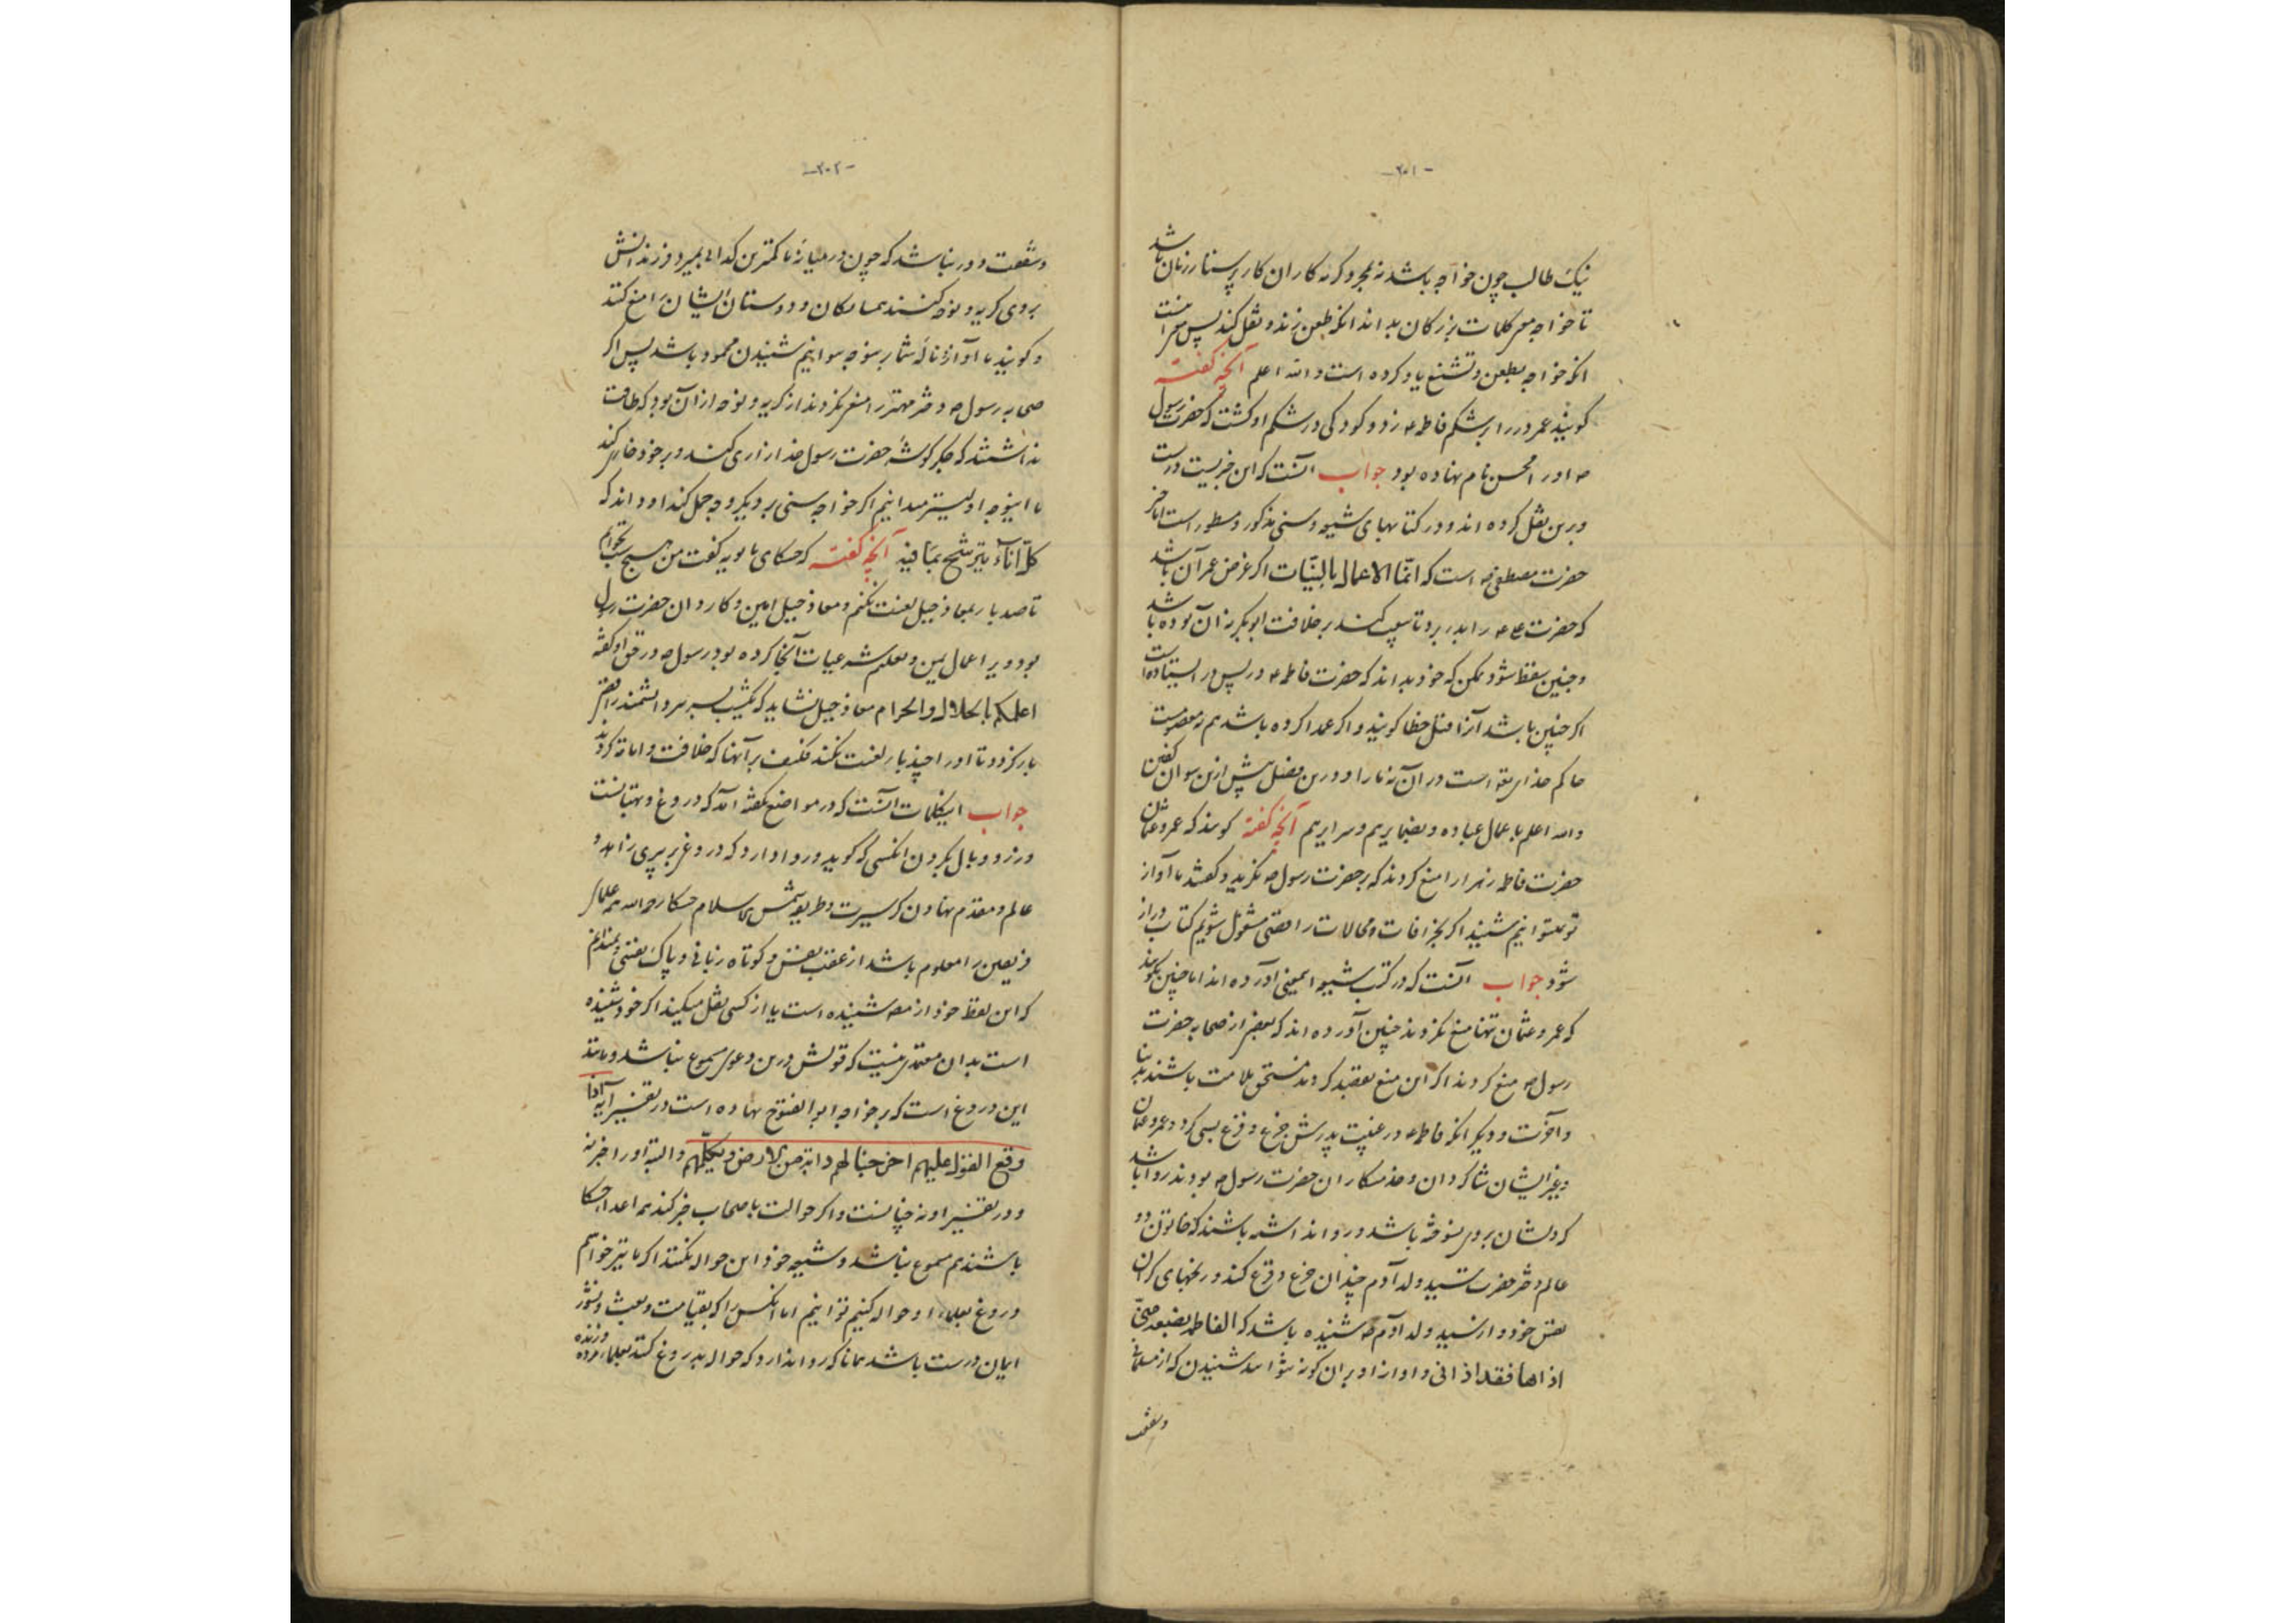 -۲۰۱-
نیک طالب چون خواجه باشد نه مجرد کرنه کاران کار پرستار زنان باشد
تا خواجه معر کلمات بزرکان بداند انکه طعن زند و نقل کند پس معرا منت
انکه خواجه بطعن و تشنع یاد کرده است والله اعلم آنچه کفته
کویند عمر در را بر شکم فاطمه ع زد و کودکی در شکم او کشت که حضرت رسول
ص او را محسن نام نهاده بود جواب آنست که این خبریست درست
و برین نقل کرده اند و در کتابهای شیعه و سنی مذکور و مسطور است اما خبر
حضرت مصطفی ص است که انّما الاعمال بالنیّات اکر غرض عمر آن باشد
که حضرت علی ع را بدر برد تا بیعت کند بر خلافت ابوبکر نه آن بوده باشد
و جنین سقط شود ممکن که خود بداند که حضرت فاطمه ع در پس در ایستاده است
اکر چنین باشد آنرا قتل خطا کویند و اکر عمدا کرده باشد هم نه معصومست
حاکم خدای تع است در آن نه ما را و درین فصل بیش ازین نتوان کفتن
والله اعلم باعمال عباده و بضمایرهم و سرایرهم آنچه کفته کویند که عمر و عثمان
حضرت فاطمه زهرا را منع کردند که بر حضرت رسول ص نکرید و کفتند ما آواز
تو نمیتوانیم شنید اکر بخرافات و محالات رافضی مشغول شویم کتاب دراز
شود جواب آنست که در کتب شیعه اینمعنی آورده اند اما چنین نکویند
که عمر و عثمان تنها منع کردند چنین آورده اند که بعضی از صحابه حضرت
رسول ص منع کردند اکر این منع بقصد کردند مستحق ملامت باشند بدنیا
و آخرت و دیکر انکه فاطمه ع در غیبت پدرش جزع و فزع بسی کرد و عمر و عثمان
و غیر ایشان شاکردان و خدمتکاران حضرت رسول ص بودند روا باشد
که دلشان بروی سوخته باشد و روا نداشته باشند که خاتون دو
عالم دختر حضرت سید ولد آدم چندان جزع و فزع کند و رنجهای کران
نفس خود و از سید ولد آدم ص شنیده باشد که الفاطمة بضعة منّی
اذاها فقد اذانی و آواز او بران کونه نتوانند شنیدن که از مسلمانی
و شفقت
-۲۰۲-
و شفقت دور نباشد که چون در میانه ما کمترین کدائی بمیرد و فرزندانش
بروی کریه و نوحه کنند همسایکان و دوستان ایشان را منع کنند
و کویند ما آواز ناله شما بر نوحه نتوانیم شنیدن محمود باشد پس اکر
صحابه رسول ص دختر مهتر را منع کردند از کریه و نوحه از آن بود که طاقت
نداشتند که جکر کوشه حضرت رسول خدا زاری کند و بر خود خواری کند
ما اینوجه اولیتر میدانیم اکر خواجه سنی بر دیکر وجه حمل کند او داند که
کلّ اناء یترشّح بما فیه آنچه کفته که حسکای بابویه کفت من هیچ شب نخوابم
تا صد بار بمعاذ جبل لعنت نکنم و معاذ جبل امین و کاردان حضرت رسول
بود و بر اعمال یمن و معلم شرعیات آنجا کرده بود و رسول ص در حق او کفته
اعلمکم بالحلال والحرام معاذ جبل نشاید که یکشب بسر مرد دانشمند رافضی
بار کردد تا او را چند بار لعنت نکند فکیف بر آنها که خلافت و امامت کردند
جواب اینکلمات آنست که در مواضع کفته آمد که دروغ و بهتانست
و زر و وبال بکردن انکسی که کوید و روا دارد که دروغ بر پیری زاهد و
عالم و مقدم نهادن که سیرت و طریقه شمس الاسلام حسکا رحمه الله همه علمای
فریقین را معلوم باشد از عفت نفس و کوتاه زبانی و پاک نفسی و نمیدانم
که این لفظ خود از مص شنیده است یا از کسی نقل میکند اکر خود شنیده
است بدان معتمدی نیست که قولش درین دعوی مسموع نباشد و مانند
این دروغ است که بر خواجه ابوالفتوح نهاده است در تفسیر آیه و اذا
وقع القول علیهم اخرجنا لهم دابة من الارض تکلّمهم و البته او را خبر نه
و در تفسیر او نه چنانست و اکر حوالت باصحاب خبر کند همه اعداء حسکا
باشند هم مسموع نباشد و شیعه خود این حواله نکنند اکر ما نیز خواهیم
دروغ بعلماء او حواله کنیم توانیم اما انکس را که بقیامت و بعث و نشور
ایمان درست باشد همانا که روا ندارد که حواله بدروغ کند بعلماء مرده و زنده